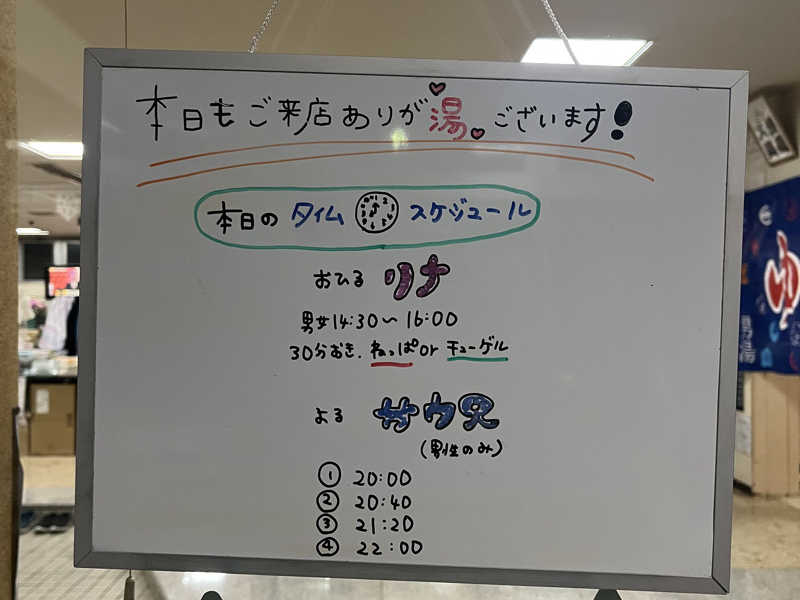 本日もご来店ありが湯ございます!
本日のタイムスケジュール
おひる リナ
男女14:30〜16:00
30分おき、ねっぱorチューゲル
よる サウ兄
(男性のみ)
① 20:00
② 20:40
③ 21:20
④ 22:00